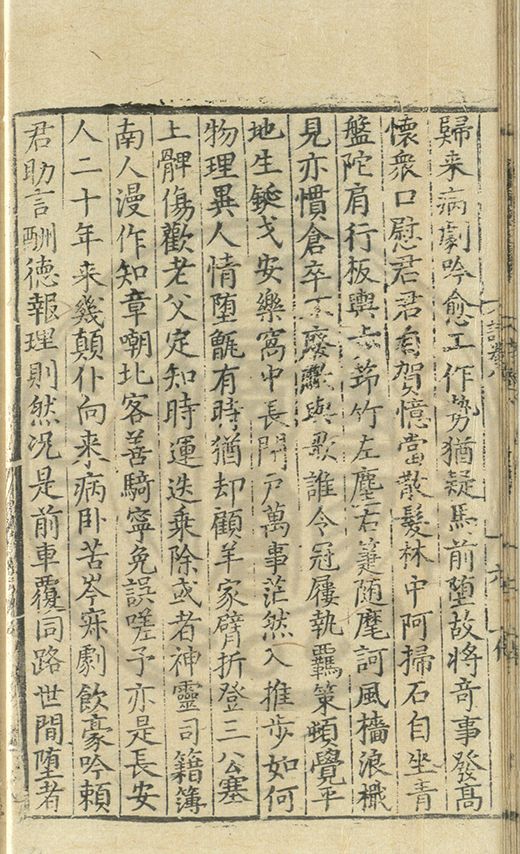 歸来病劇吟愈工作勢猶疑馬前堕故將竒事發髙
懷衆口慰君君自賀憶當散髪林中阿掃石自坐青
盤陀肩行板輿赤笻竹左麈右箑随麾訶風檣浪檝
見亦慣倉卒不廢嘯與歌誰令冠屨執羈策頓覺平
地生鋋戈安樂窩中長閉戸萬事茫然入推歩如何
物理異人情堕甑有時猶却顧羊家臂折登三公塞
上髀傷歡老父定知時運迭乗除或者神靈司籍簿
南人漫作知章嘲北客善騎寧免誤嗟予亦是長安
人二十年来幾顛仆向来小病卧苦岑寂劇飲豪吟頼
君助言酬德報理則然况是前車覆同路世間堕者